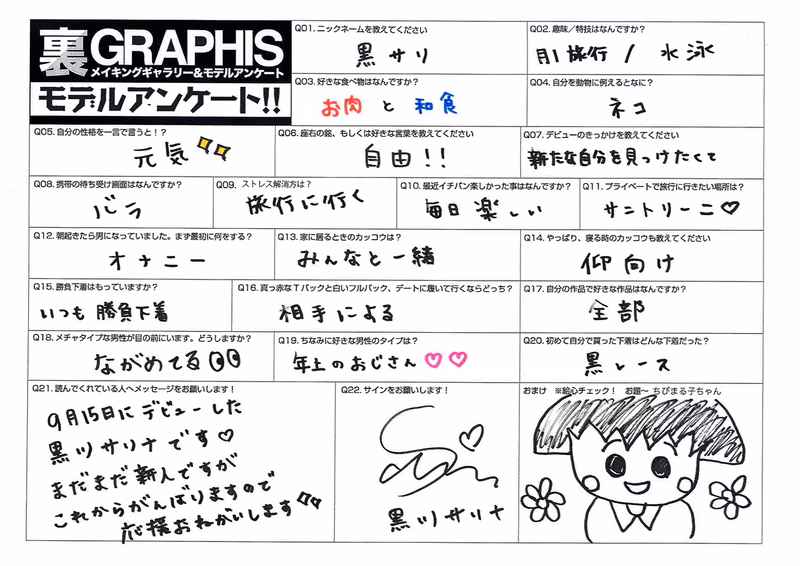 裏GRAPHIS
メイキングギャラリー&モデルアンケート
モデルアンケート!!
Q01. ニックネームを教えてください
黒サリ
Q02. 趣味／特技はなんですか？
旅行 / 水泳
Q03. 好きな食べ物はなんですか？
お肉と和食
Q04. 自分を動物に例えるとなに？
ネコ
Q05. 自分の性格を一言で言うと！？
元気
Q06. 座右の銘、もしくは好きな言葉を教えてください
自由!!
Q07. デビューのきっかけを教えてください
新たな自分を見つけたくて
Q08. 携帯の待ち受け画面はなんですか？
バラ
Q09. ストレス解消方は？
旅行に行く
Q10. 最近イチバン楽しかった事はなんですか？
毎日楽しい
Q11. プライベートで旅行に行きたい場所は？
サントリーニ♡
Q12. 朝起きたら男になっていました。まず最初に何をする？
オナニー
Q13. 家に居るときのカッコウは？
みんなと一緒
Q14. やっぱり、寝る時のカッコウも教えてください
仰向け
Q15. 勝負下着はもっていますか？
いつも勝負下着
Q16. 真っ赤なTバックと白いフルバック、デートに履いて行くならどっち？
相手による
Q17. 自分の作品で好きな作品はなんですか？
全部
Q18. メチャタイプな男性が目の前にいます。どうしますか？
ながめてる
Q19. ちなみに好きな男性のタイプは？
年上のおじさん♡♡
Q20. 初めて自分で買った下着はどんな下着だった？
黒レース
Q21. 読んでくれている人へメッセージをお願いします！
9月15日にデビューした
黒川サリナです♡
まだまだ新人ですが
これからがんばりますので
応援おねがいします
Q22. サインをお願いします！
黒川サリナ
おまけ ※絵心チェック！ お題〜ちびまる子ちゃん